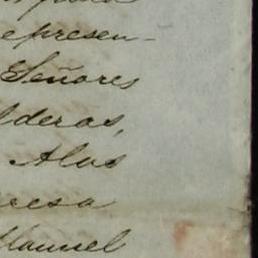 epresen-
Señores
lderas,
Alas
resa
Manuel